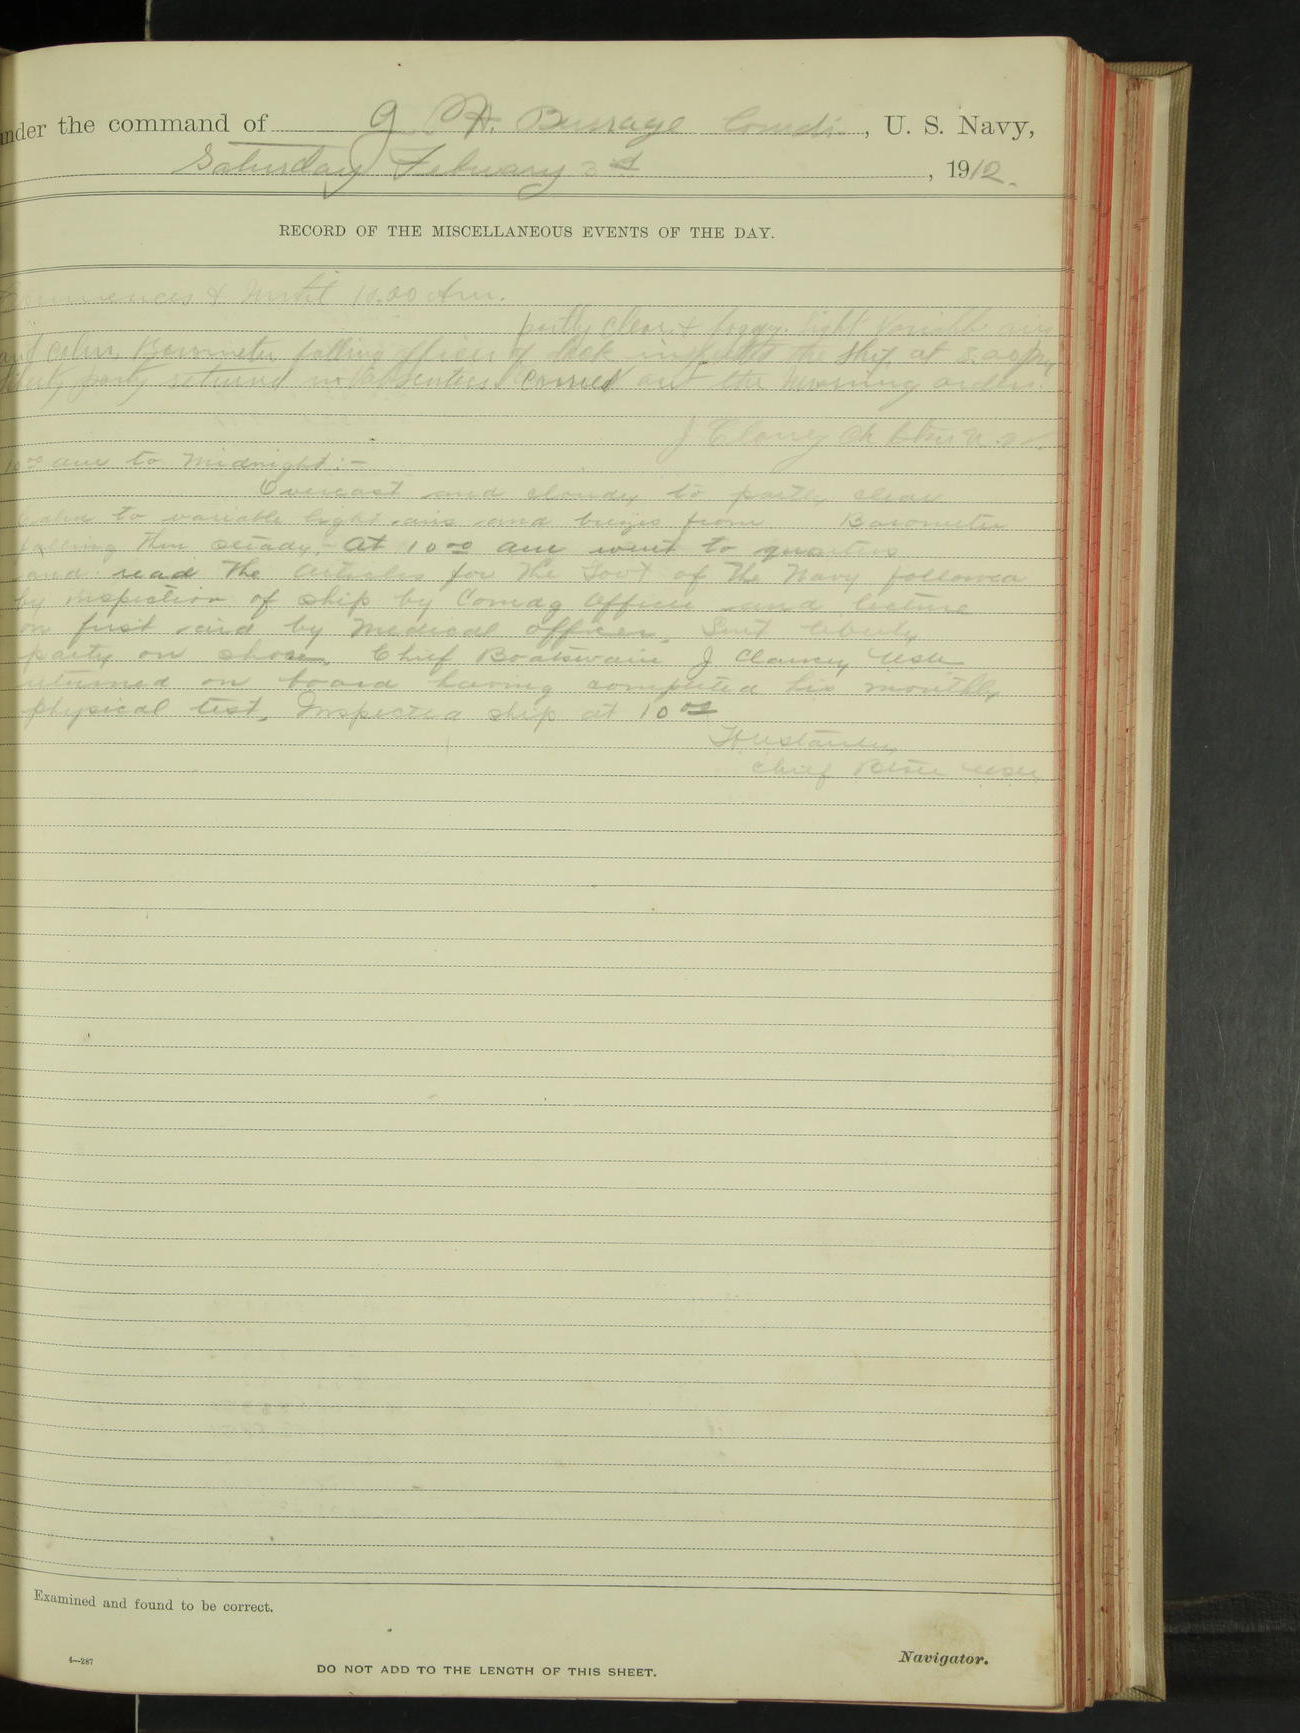 under the command of G. H. Burrage Comdr., U. S. Navy,
Saturday February 3d, 1912.
RECORD OF THE MISCELLANEOUS EVENTS OF THE DAY.
Commences & Until 10.00 Am.
partly clear & foggy. light variable airs
and calm, Barometer falling officer of deck inspected the ship at 8.00 Am,
liberty party returned no absentees. Carried out the morning orders.
J Clancy Ch Btsn U.S.N.
10 00 am to Midnight:-
Overcast and cloudy to partly clear
calm to variable light airs and breezes from Barometer
falling then steady. At 10 00 am went to quarters
and read the Articles for the Govt of the Navy followed
by inspection of ship by Comdg Officer and lecture
on first aid by Medical officer. Sent liberty
party on shore. Chief Boatswain J Clancy USN
returned on board having completed his monthly
physical test. Inspected ship at 10 00
Chief Btsn USN
Examined and found to be correct.
4—287
DO NOT ADD TO THE LENGTH OF THIS SHEET.
Navigator.